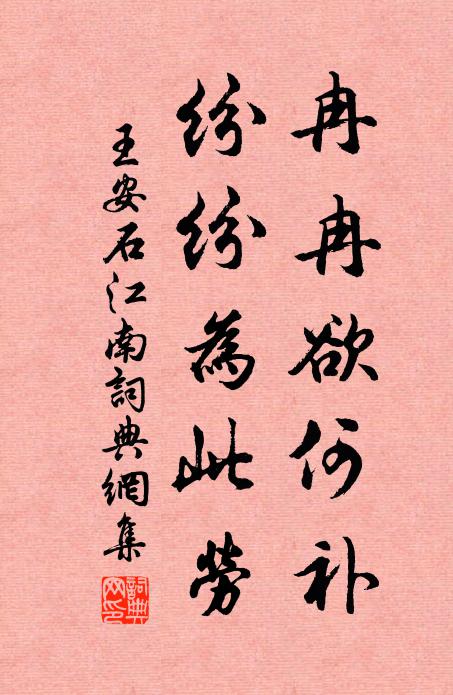 冉冉欲何补
纷纷為此勞
王安石江南詞典網集
詞典網印